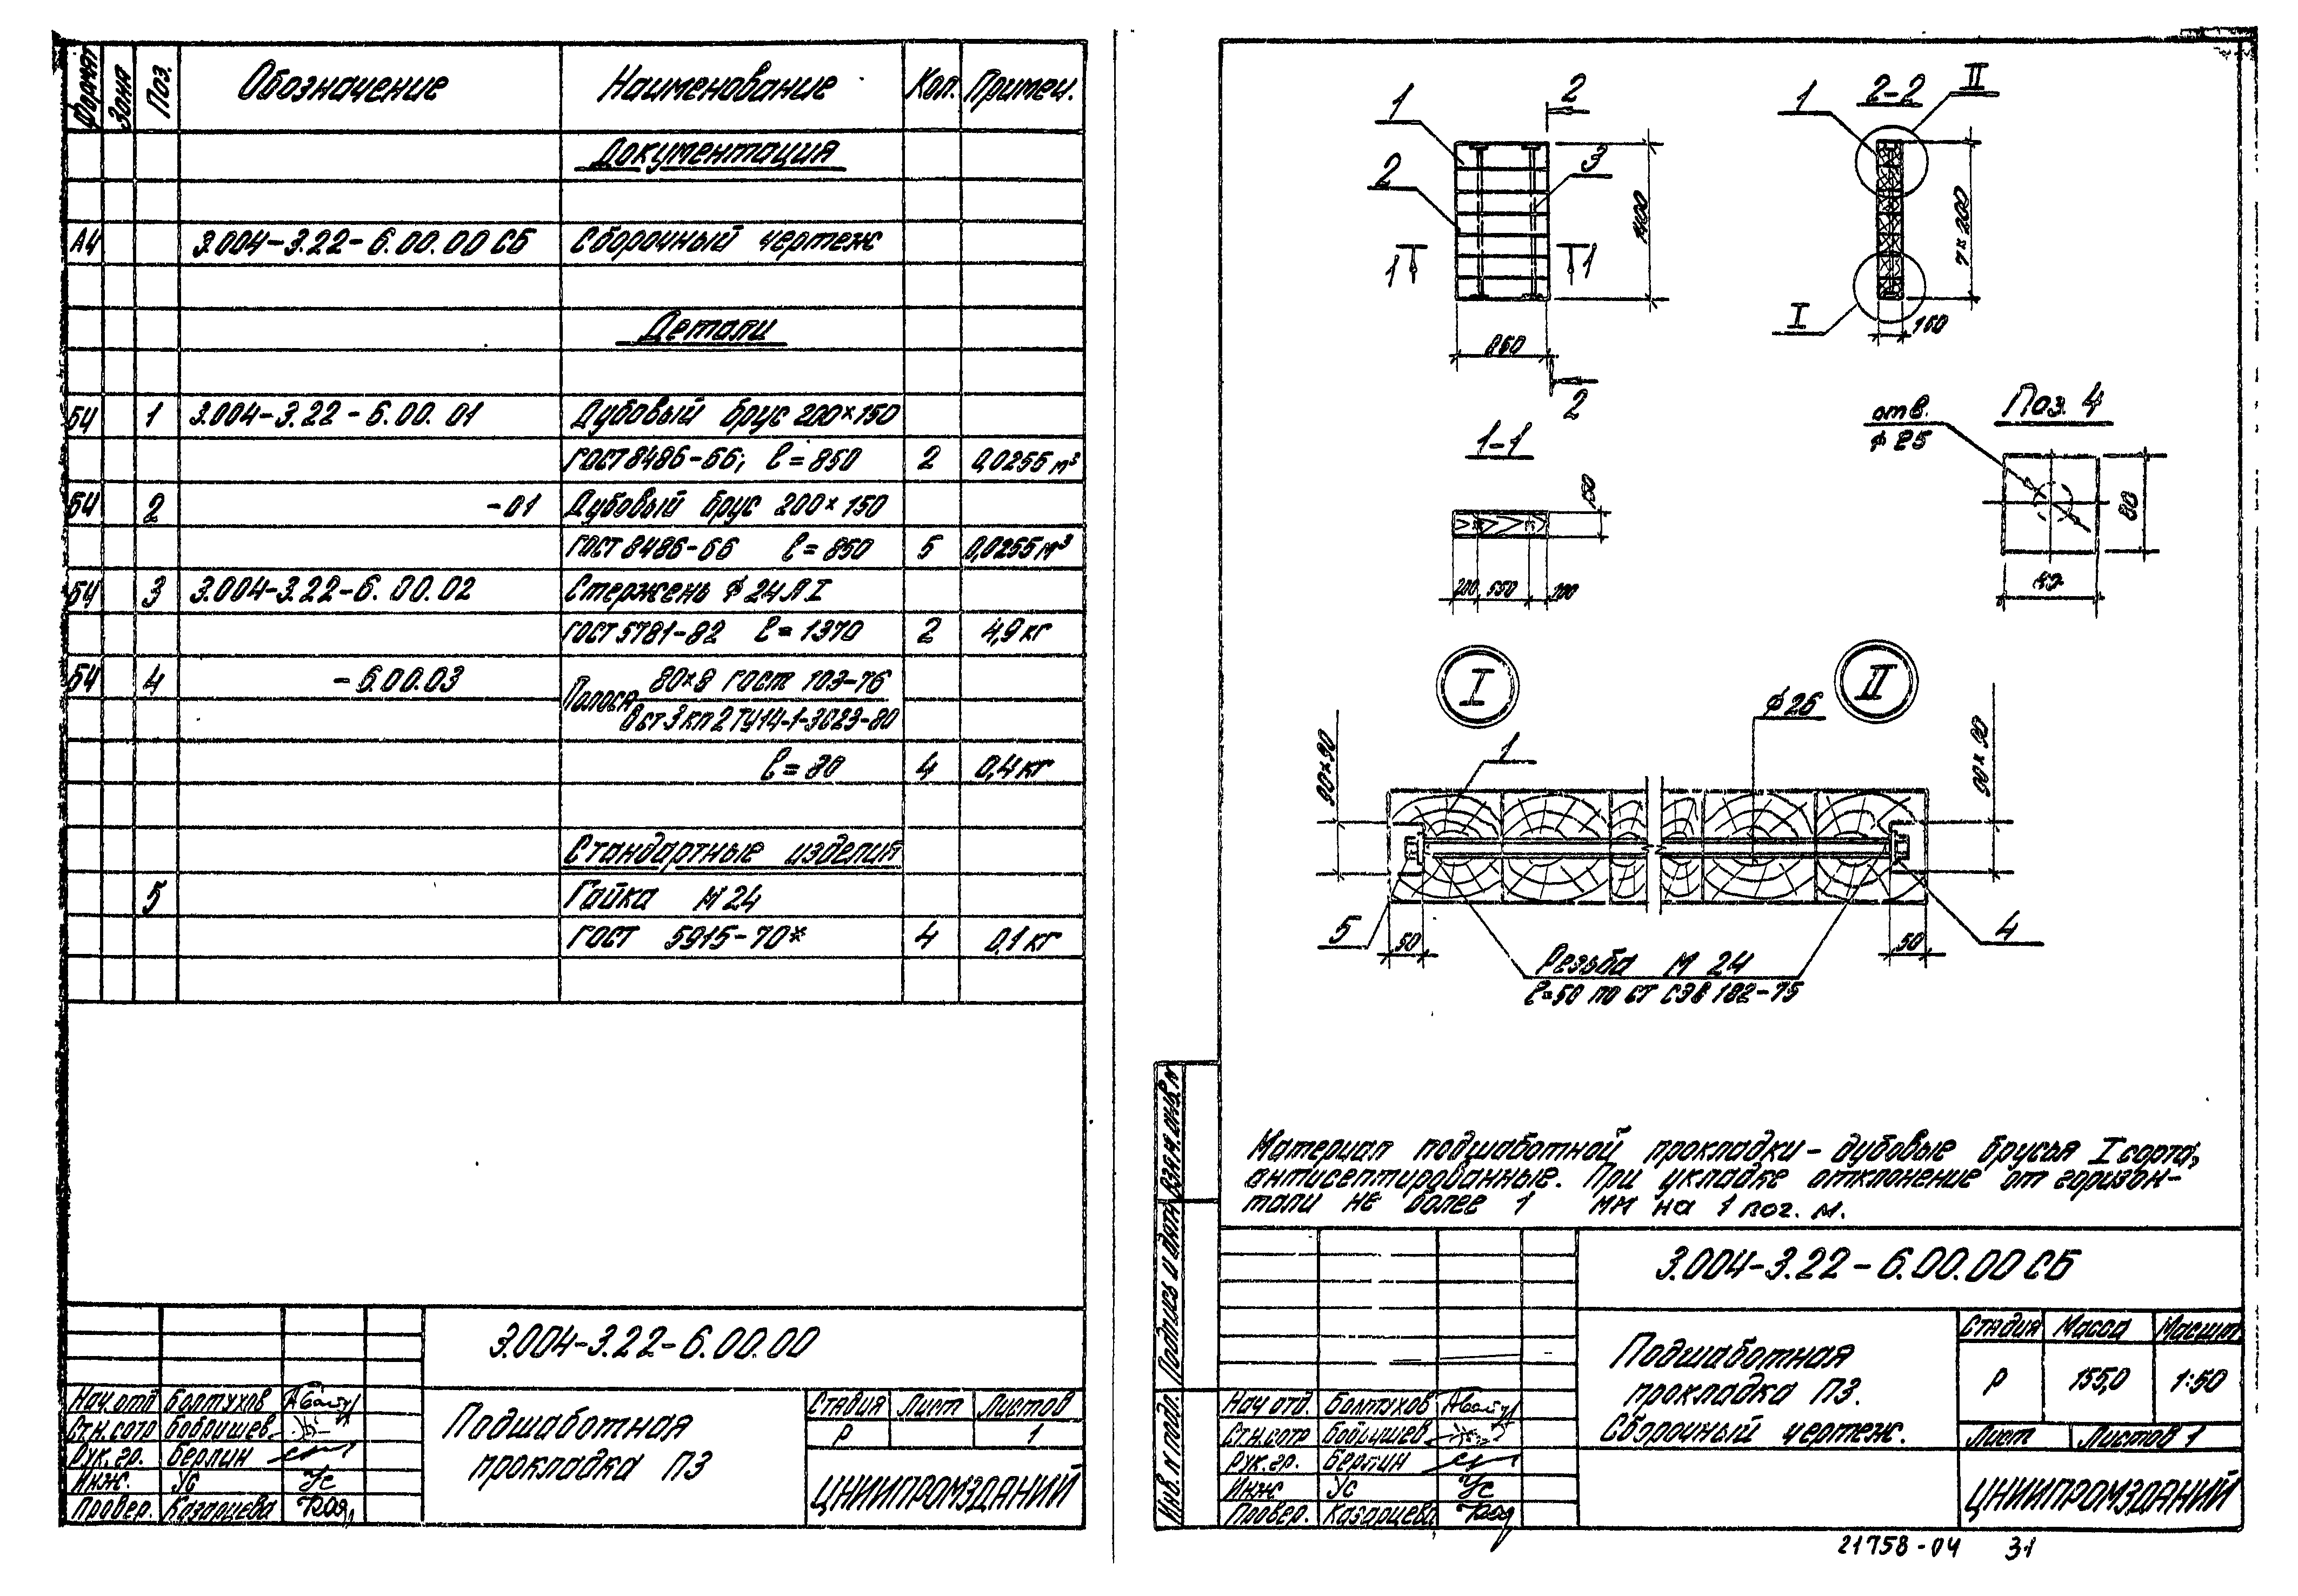 Формат Зона Поз. Обозначение Наименование Кол. Примеч.
Документация
А4 3.004-3.22-6.00.00 СБ Сборочный чертеж
Детали
БЧ 1 3.004-3.22-6.00.01 Дубовый брус 200×150
ГОСТ 8486-66; ℓ=850 2 0,0255 м³
БЧ 2 -01 Дубовый брус 200×150
ГОСТ 8486-66 ℓ=850 5 0,0255 м³
БЧ 3 3.004-3.22-6.00.02 Стержень ϕ 24 А I
ГОСТ 5781-82 ℓ=1370 2 4,9 кг
БЧ 4 -6.00.03 Полоса 80×8 ГОСТ 103-76
Вст 3 кп 2 ТУ14-1-3023-80
ℓ=80 4 0,4 кг
Стандартные изделия
5 Гайка М 24
ГОСТ 5915-70* 4 0,1 кг
3.004-3.22-6.00.00
Нач.отд Болтухов
Ст.н.сотр Бобрышев
Рук.гр. Берлин
Инж. Ус Ус
Провер. Казарцева
Подшаботная
прокладка П3
Стадия Лист Листов
Р 1
ЦНИИПРОМЗДАНИЙ
1 2 2 3
1400
1 1
860
2
1 2-2 II
7×200
I
150
1-1
150
200 550 100
отв.
ϕ 25
Поз. 4
80
I II
ϕ 26
90×90 1 90×90
5 50 50 4
Резьба М 24
ℓ=50 по СТ СЭВ 182-75
Материал подшаботной прокладки - дубовые брусья I сорта,
антисептированные. При укладке отклонение от горизон-
тали не более 1 мм на 1 пог. м.
Взам.инв.N
Подпись и дата
Инв. N подл.
3.004-3.22-6.00.00 СБ
Нач отд. Болтухов
Ст.н.сотр Бобрышев
Рук.гр. Берлин
Инж Ус Ус
Провер. Казарцева
Подшаботная
прокладка П3.
Сборочный чертеж.
Стадия Масса Масшт
Р 155,0 1:50
Лист Листов 1
ЦНИИПРОМЗДАНИЙ
21758-04 31